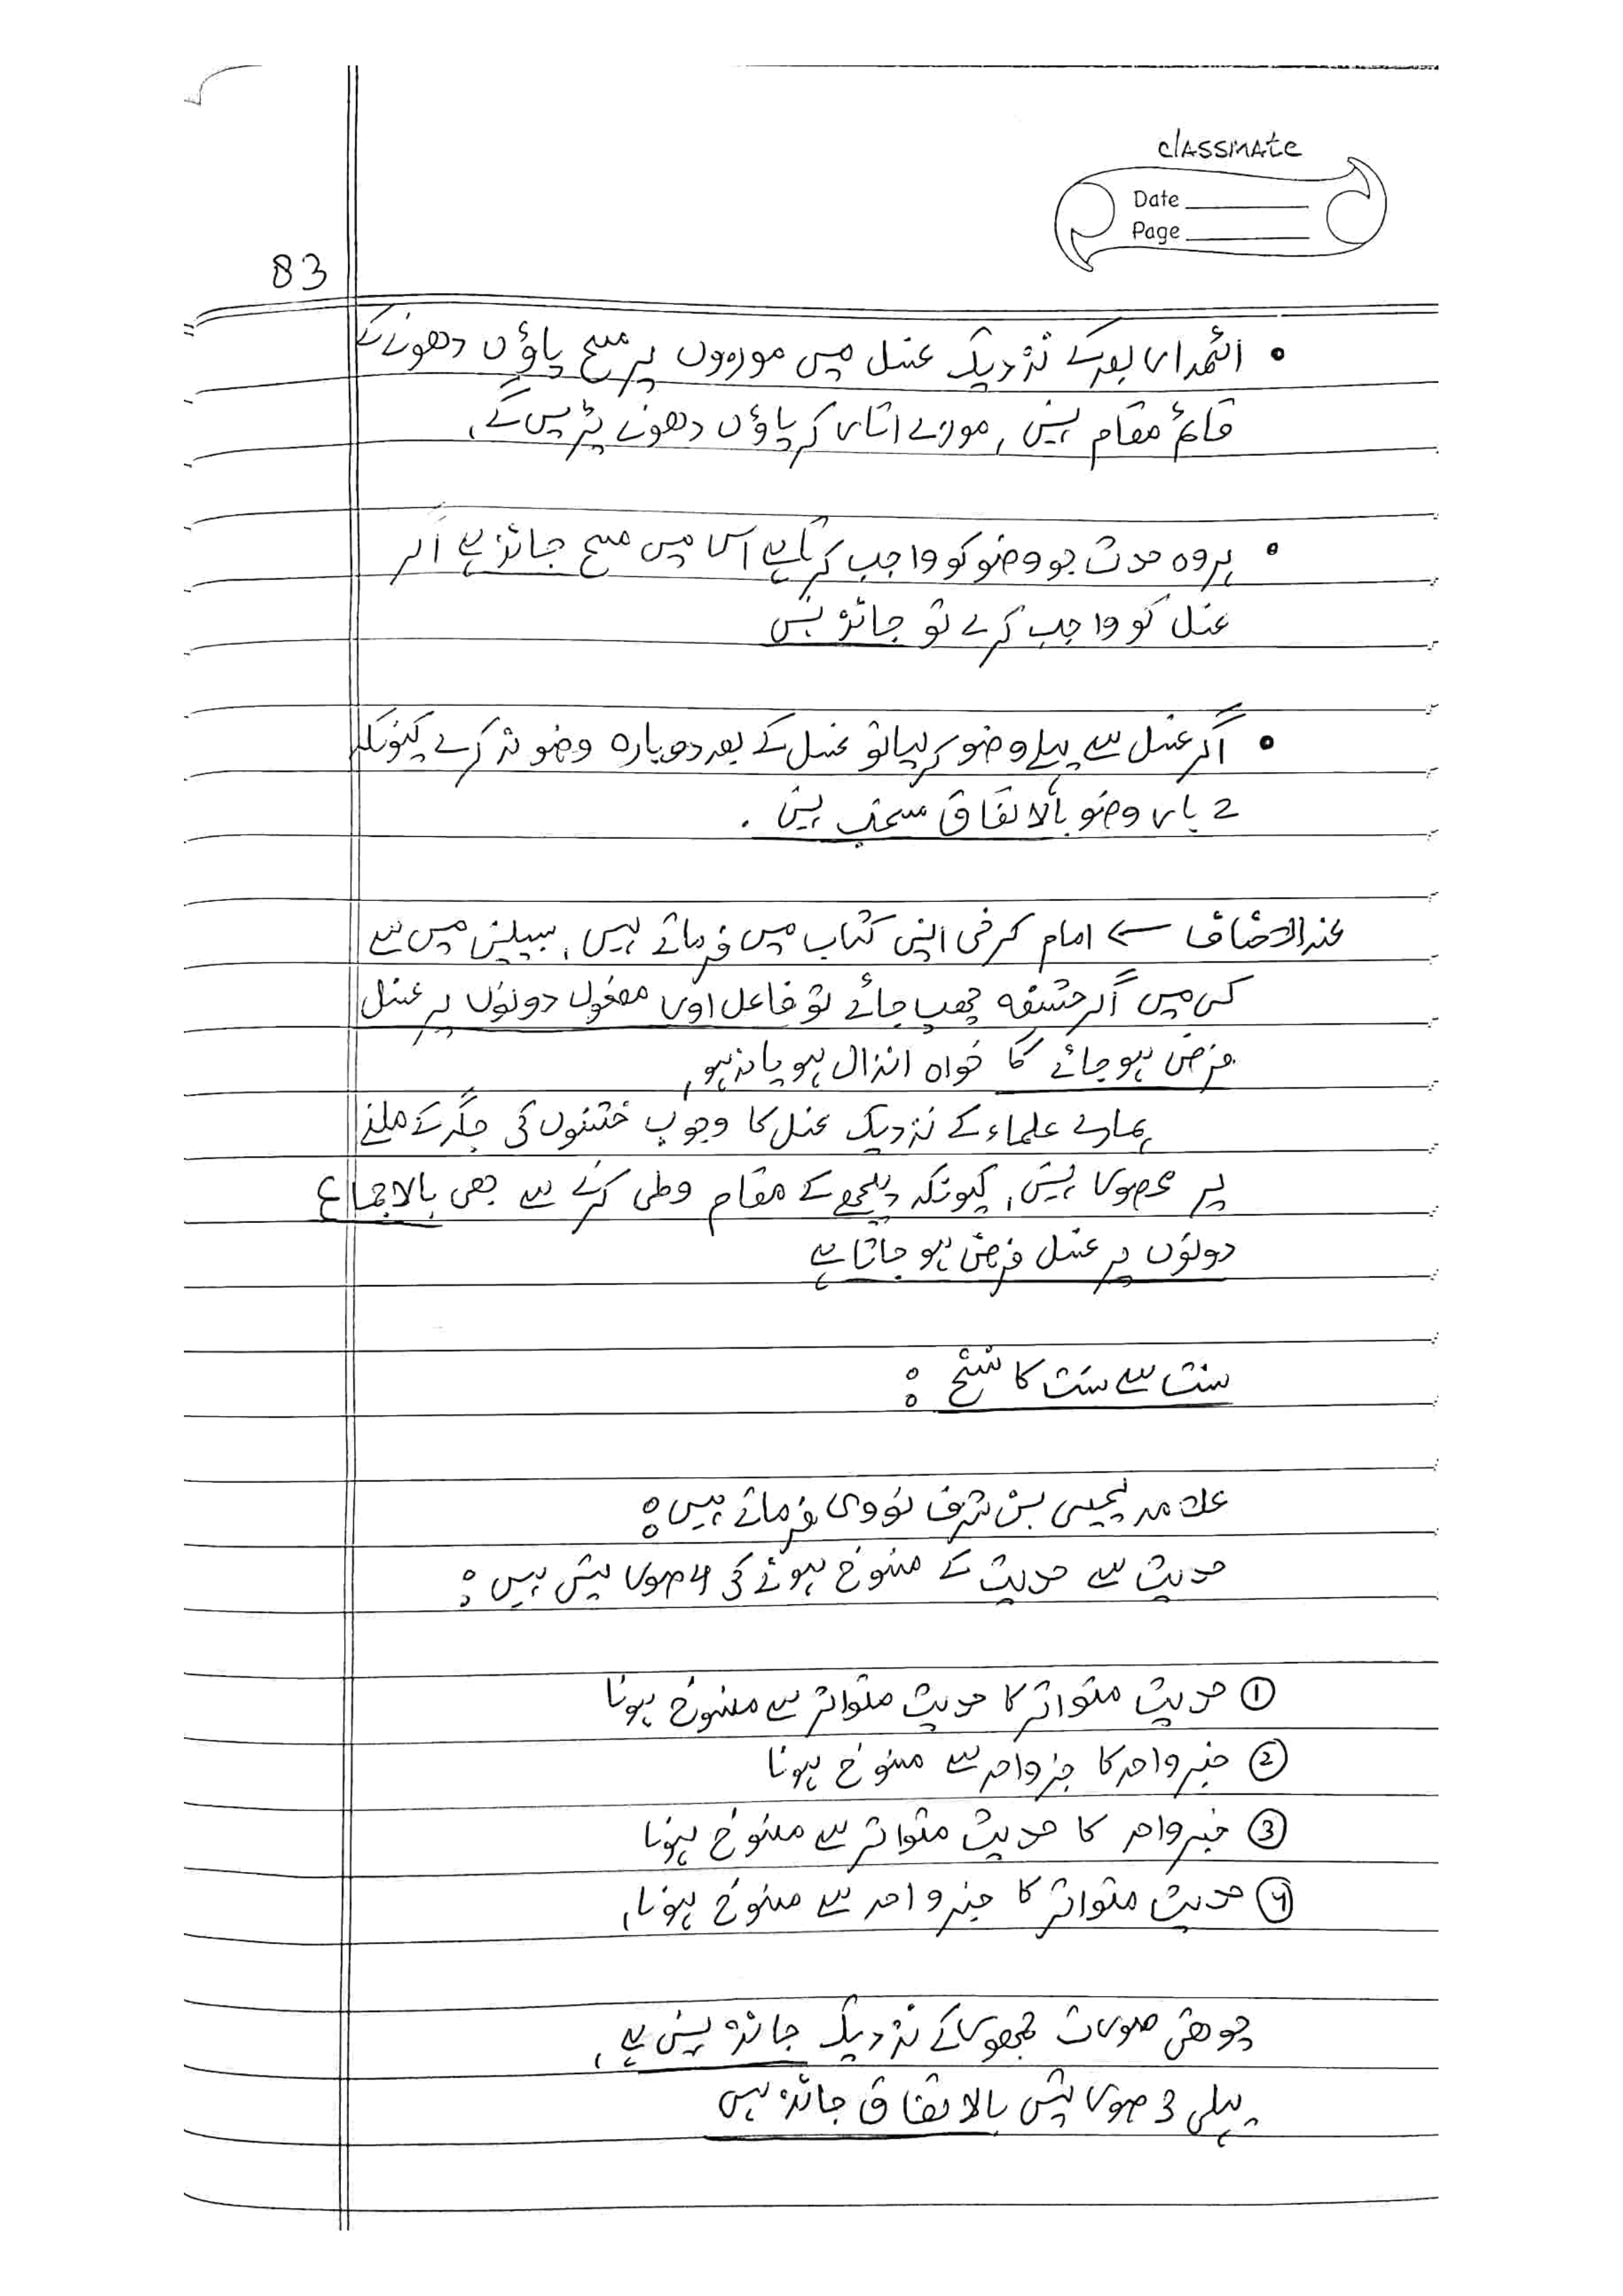 classmate
Date
Page
83
• ائمہ اربعہ کے نزدیک غسل میں موزوں پر مسح پاؤں دھونے کے
قائم مقام نہیں، موزے اتار کر پاؤں دھونے پڑیں گے،
• ہر وہ حدث جو وضو کو واجب کرتا ہے اس میں مسح جائز ہے اگر
غسل کو واجب کرے تو جائز نہیں
• اگر غسل سے پہلے وضو کر لیا تو غسل کے بعد دوبارہ وضو نہ کرے کیونکہ
2 بار وضو بالاتفاق مستحب نہیں ۔
عند الاحناف ← امام کرخی اپنی کتاب میں فرماتے ہیں، سبیلین میں سے
کسی میں اگر حشفہ چھپ جائے تو فاعل اور مفعول دونوں پر غسل
فرض ہو جائے گا خواہ انزال ہو یا نہ ہو،
ہمارے علماء کے نزدیک غسل کا وجوب ختنوں کی جگہ کے ملنے
پر محصور نہیں، کیونکہ پیچھے کے مقام وطی کرنے سے بھی بالاجماع
دونوں پر غسل فرض ہو جاتا ہے
سنت سے سنت کا نسخ :
علامہ یحییٰ بن شرف نووی فرماتے ہیں :
حدیث سے حدیث کے منسوخ ہونے کی 4 صورتیں ہیں :
① حدیث متواتر کا حدیث متواتر سے منسوخ ہونا
② خبر واحد کا خبر واحد سے منسوخ ہونا
③ خبر واحد کا حدیث متواتر سے منسوخ ہونا
④ حدیث متواتر کا خبر واحد سے منسوخ ہونا،
چوتھی صورت جمہور کے نزدیک جائز نہیں ہے،
پہلی 3 صورتیں بالاتفاق جائز ہیں